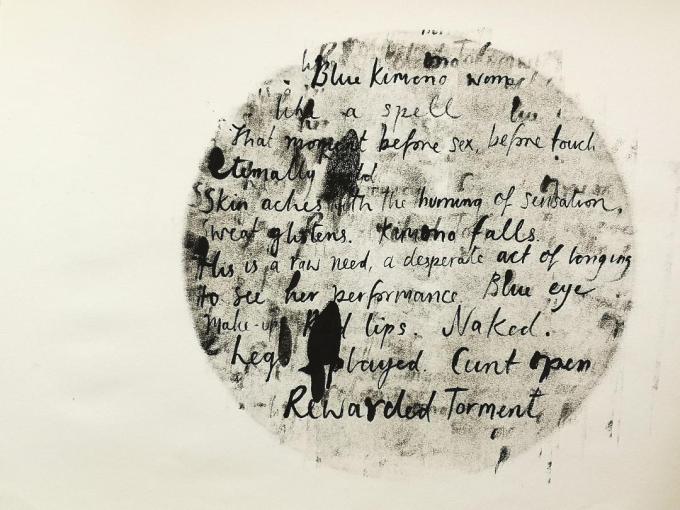 Blue Kimono
like a spell
That moment before sex, before touch
eternally
Skin aches with the burning of sensation,
Sweat glistens. Kimono falls.
this is a raw need, a desperate act of longing
to see her performance. Blue eye
Make-up Red lips. Naked.
Legs splayed. Cunt open
Rewarded Torment.